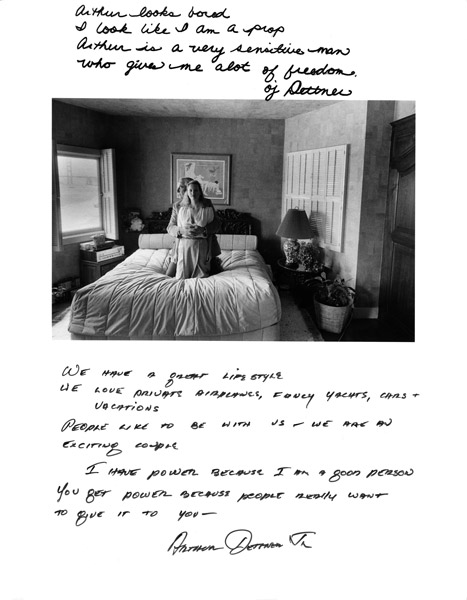 Arthur looks bored
I look like I am a prop
Arthur is a very sensitive man
who gives me alot of freedom.
Dettner
WE HAVE A GREAT LIFE STYLE
WE LOVE PRIVATE AIRPLANES, FANCY YACHTS, CARS +
VACATIONS
PEOPLE LIKE TO BE WITH US – WE ARE AN
EXCITING COUPLE
I HAVE POWER BECAUSE I AM A GOOD PERSON
YOU GET POWER BECAUSE PEOPLE REALLY WANT
TO GIVE IT TO YOU –
ARTHUR DETTNER JR